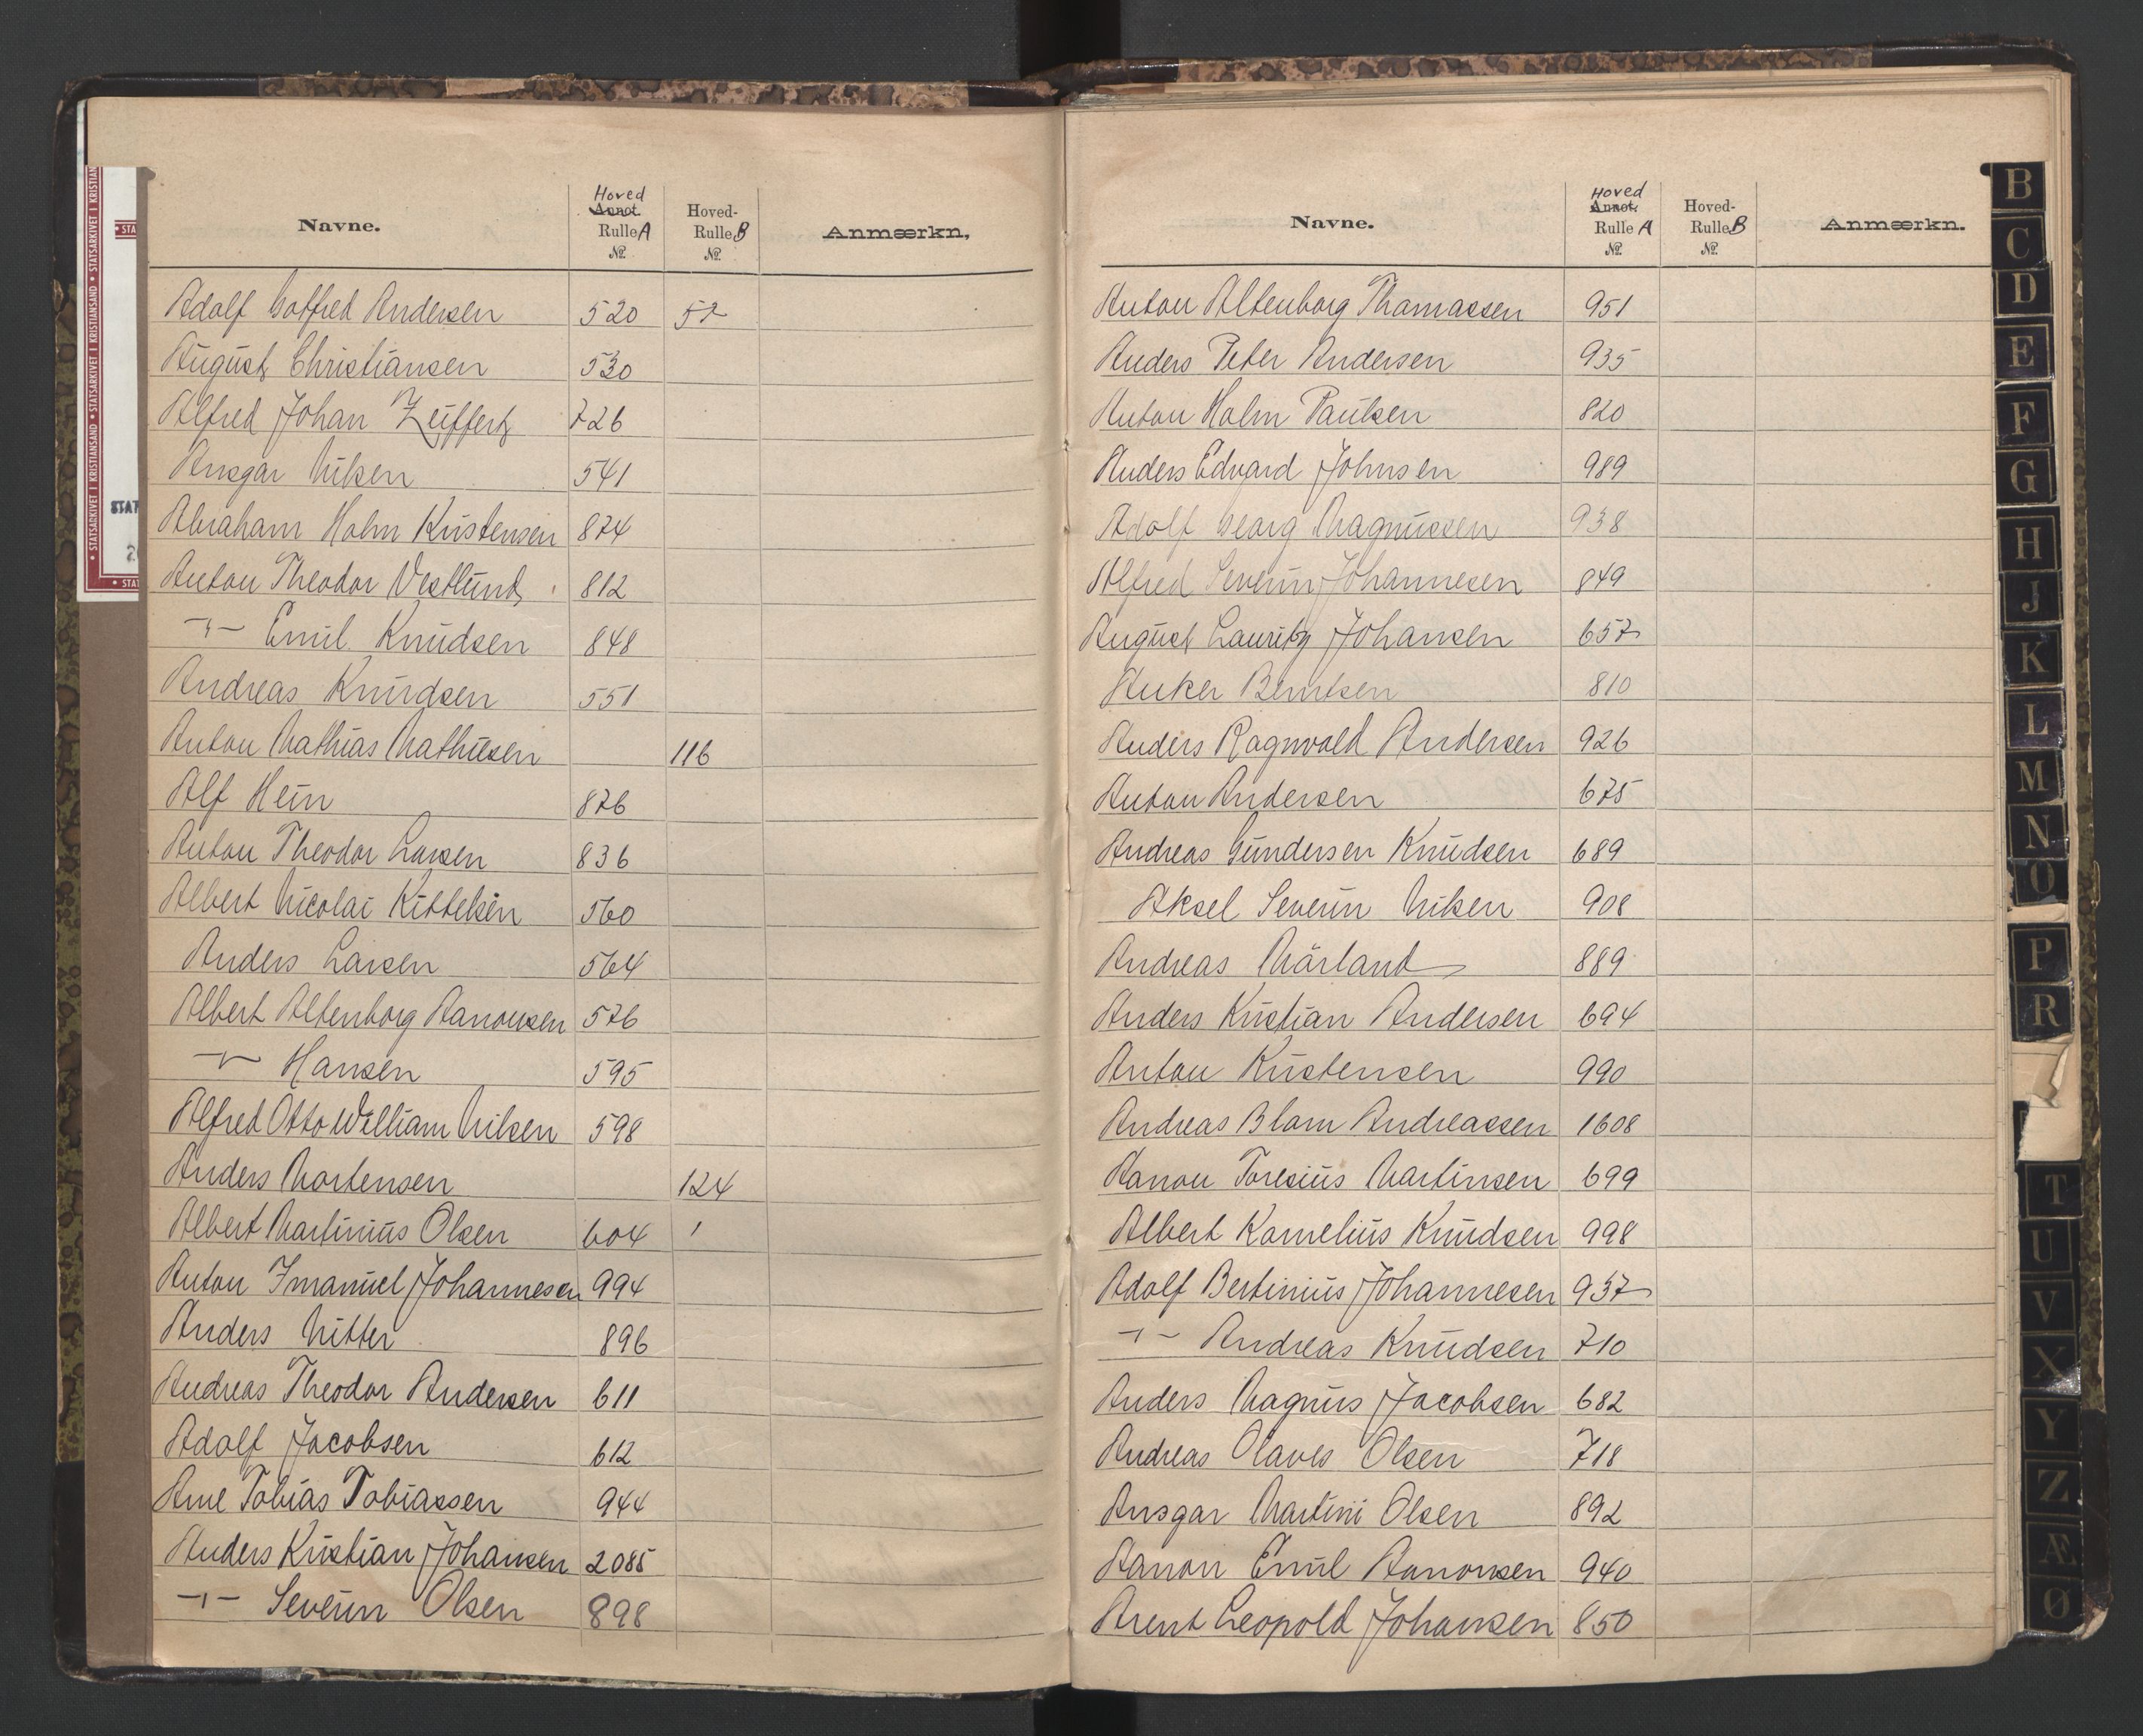 Navne. Hoved Annot. Rulle A № Hoved-Rulle B № Anmærkn.
Adolf Gotfred Andersen 520 57
August Christiansen 530
Alfred Johan Zeiffert 726
Ansgar Nilsen 541
Abraham Holm Kristensen 874
Anton Theodor Vestlund 812
-"- Emil Knudsen 848
Andreas Knudsen 551
Anton Mathias Mathisen 116
Alf Hein 876
Anton Theodor Larsen 836
Albert Nicolai Kittelsen 560
Anders Larsen 564
Albert Altenborg Aanonsen 576
-"- Hansen 595
Alfred Otto William Nilsen 598
Anders Mortensen 124
Albert Martinius Olsen 604
Anton Imanuel Johannesen 994
Anders Nitter 896
Andreas Theodor Andersen 611
Adolf Jacobsen 612
Arne Tobias Tobiassen 944
Anders Kristian Johansen 2085
-"- Severin Olsen 898
Navne. Hoved Annot. Rulle A № Hoved-Rulle B № Anmærkn.
Anton Altenborg Thomassen 951
Anders Peter Andersen 935
Anton Holm Paulsen 820
Anders Edvard Johnsen 989
Adolf Georg Magnussen 938
Alfred Severin Johannesen 849
August Lauritz Johansen 657
Anker Berntsen 810
Anders Ragnvald Andersen 926
Anton Andersen 675
Andreas Gundersen Knudsen 689
Aksel Severin Nilsen 908
Andreas Mårland 889
Anders Kristian Andersen 694
Anton Kristensen 990
Andreas Blom Andreassen 1608
Aanon Toresius Martinsen 699
Albert Kornelius Knudsen 998
Adolf Bertinius Johannesen 937
-"- Andreas Knudsen 710
Anders Magnus Jacobsen 682
Andreas Olaves Olsen 718
Ansgar Martini Olsen 892
Aanon Emil Aanonsen 940
Arent Leopold Johansen 850
B
C
D
E
F
G
H
J
K
L
M
N
O
P
R
T
U
V
X
Y
Z
Æ
Ø
STATSARKIVET I KRISTIANSAND • STATSARKIVET I KRISTIANSAND • STATSARKIVET I KRISTIAN